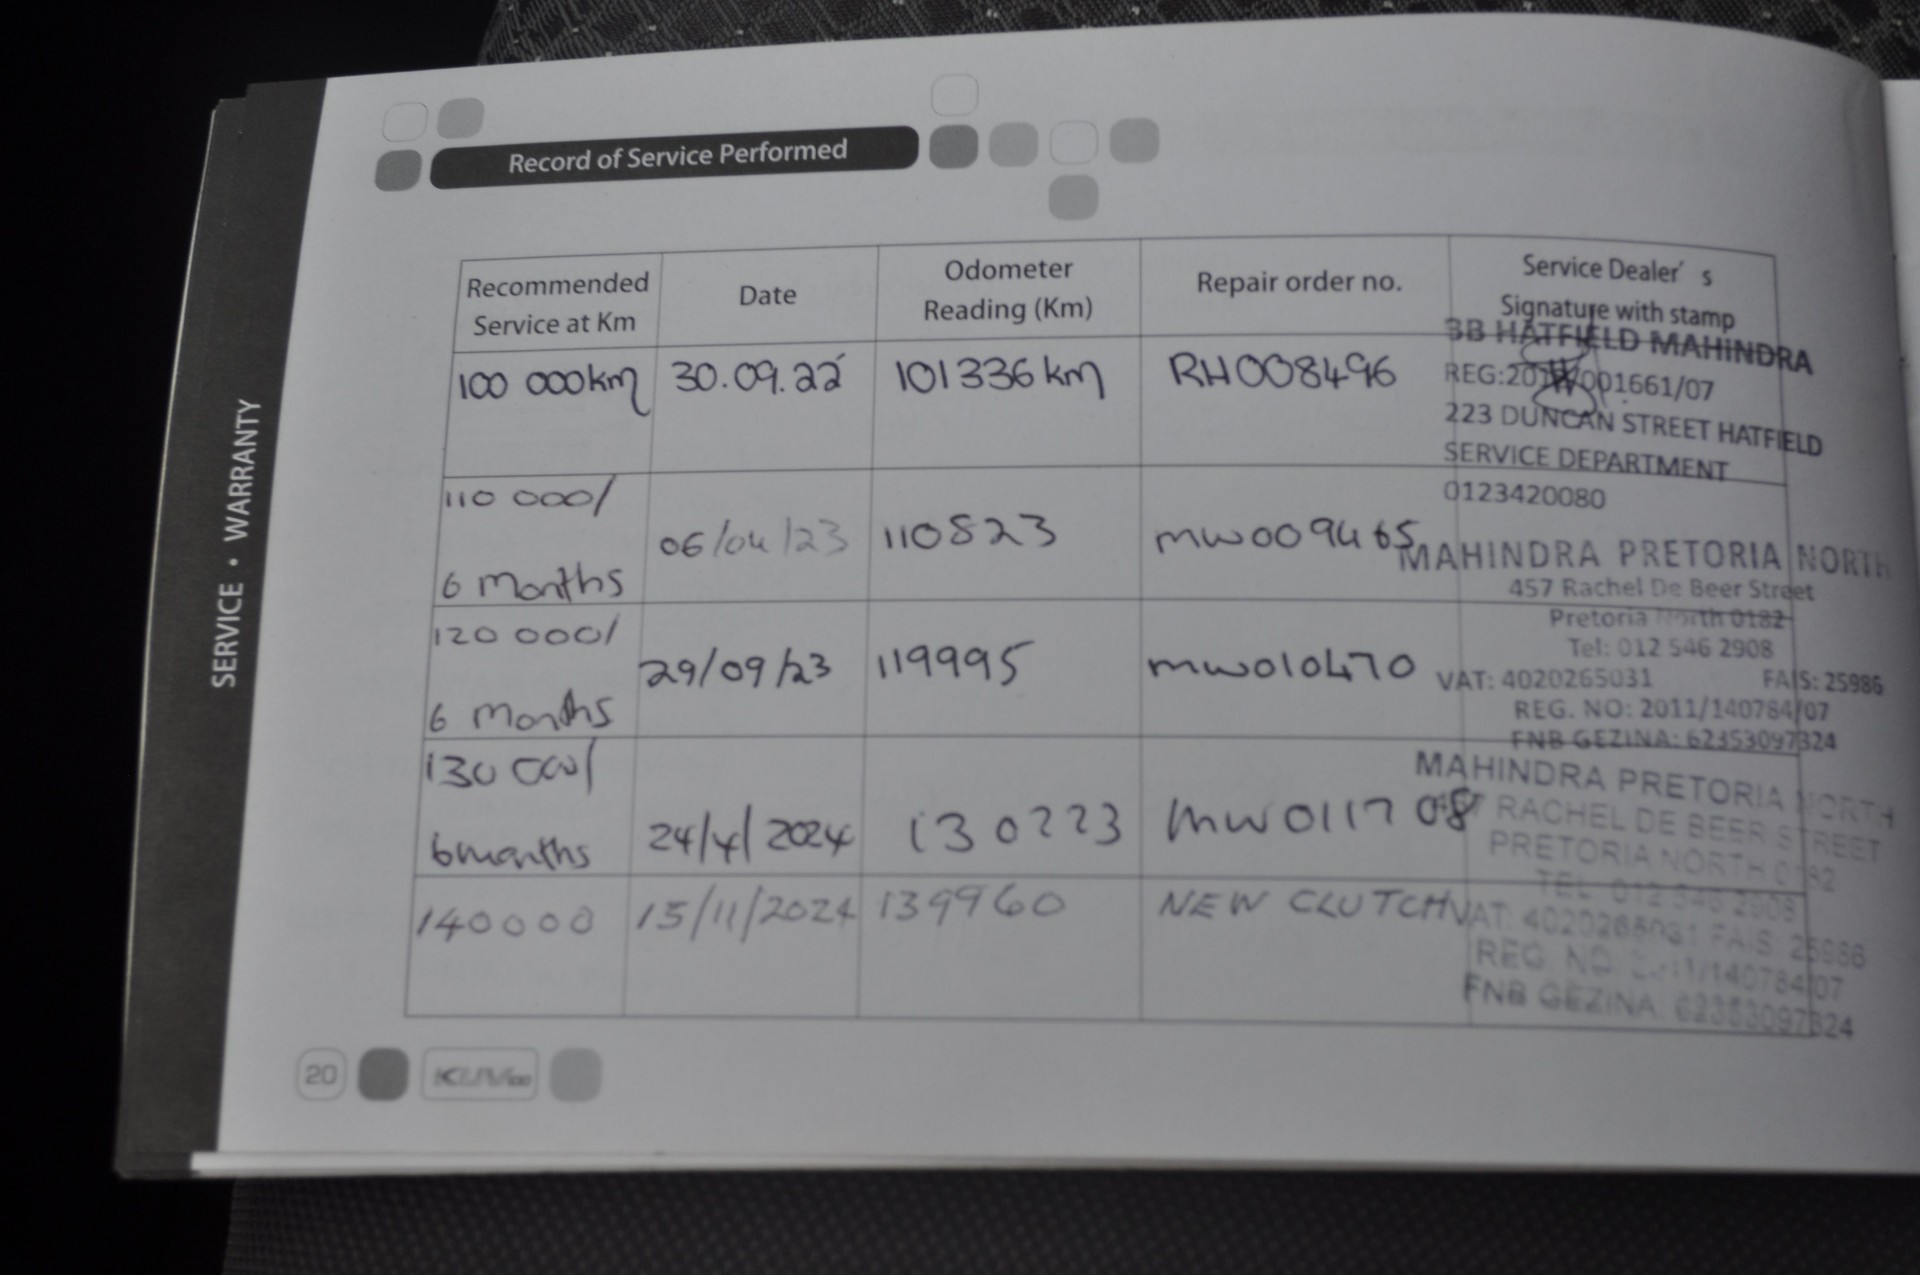 Record of Service Performed
SERVICE • WARRANTY
Recommended Service at Km
Date
Odometer Reading (Km)
Repair order no.
Service Dealer's Signature with stamp
100 000km 30.09.22 101336 km RH008496
BB HATFIELD MAHINDRA
001661/07
223 DUNCAN STREET HATFIELD
SERVICE DEPARTMENT
0123420080
110 000/
6 months
06/04/23 110823 mw009465
MAHINDRA PRETORIA NORTH
457 Rachel De Beer Street
Pretoria North 0182
Tel: 012 546 2908
VAT: 4020265031 FAIS: 25986
REG. NO: 2011/140784/07
FNB GEZINA: 62353097324
120 000/
6 months
29/09/23 119995 mw010470
130 000/
6 months
24/4/2024 130223 mw011708
MAHINDRA PRETORIA NORTH
457 RACHEL DE BEER STREET
PRETORIA NORTH 0182
TEL: 012 546 2908
VAT: 4020265031 FAIS: 25986
REG. NO: 2011/140784/07
FNB GEZINA: 62353097324
140000 15/11/2024 139960 NEW CLUTCH
20
KUV100